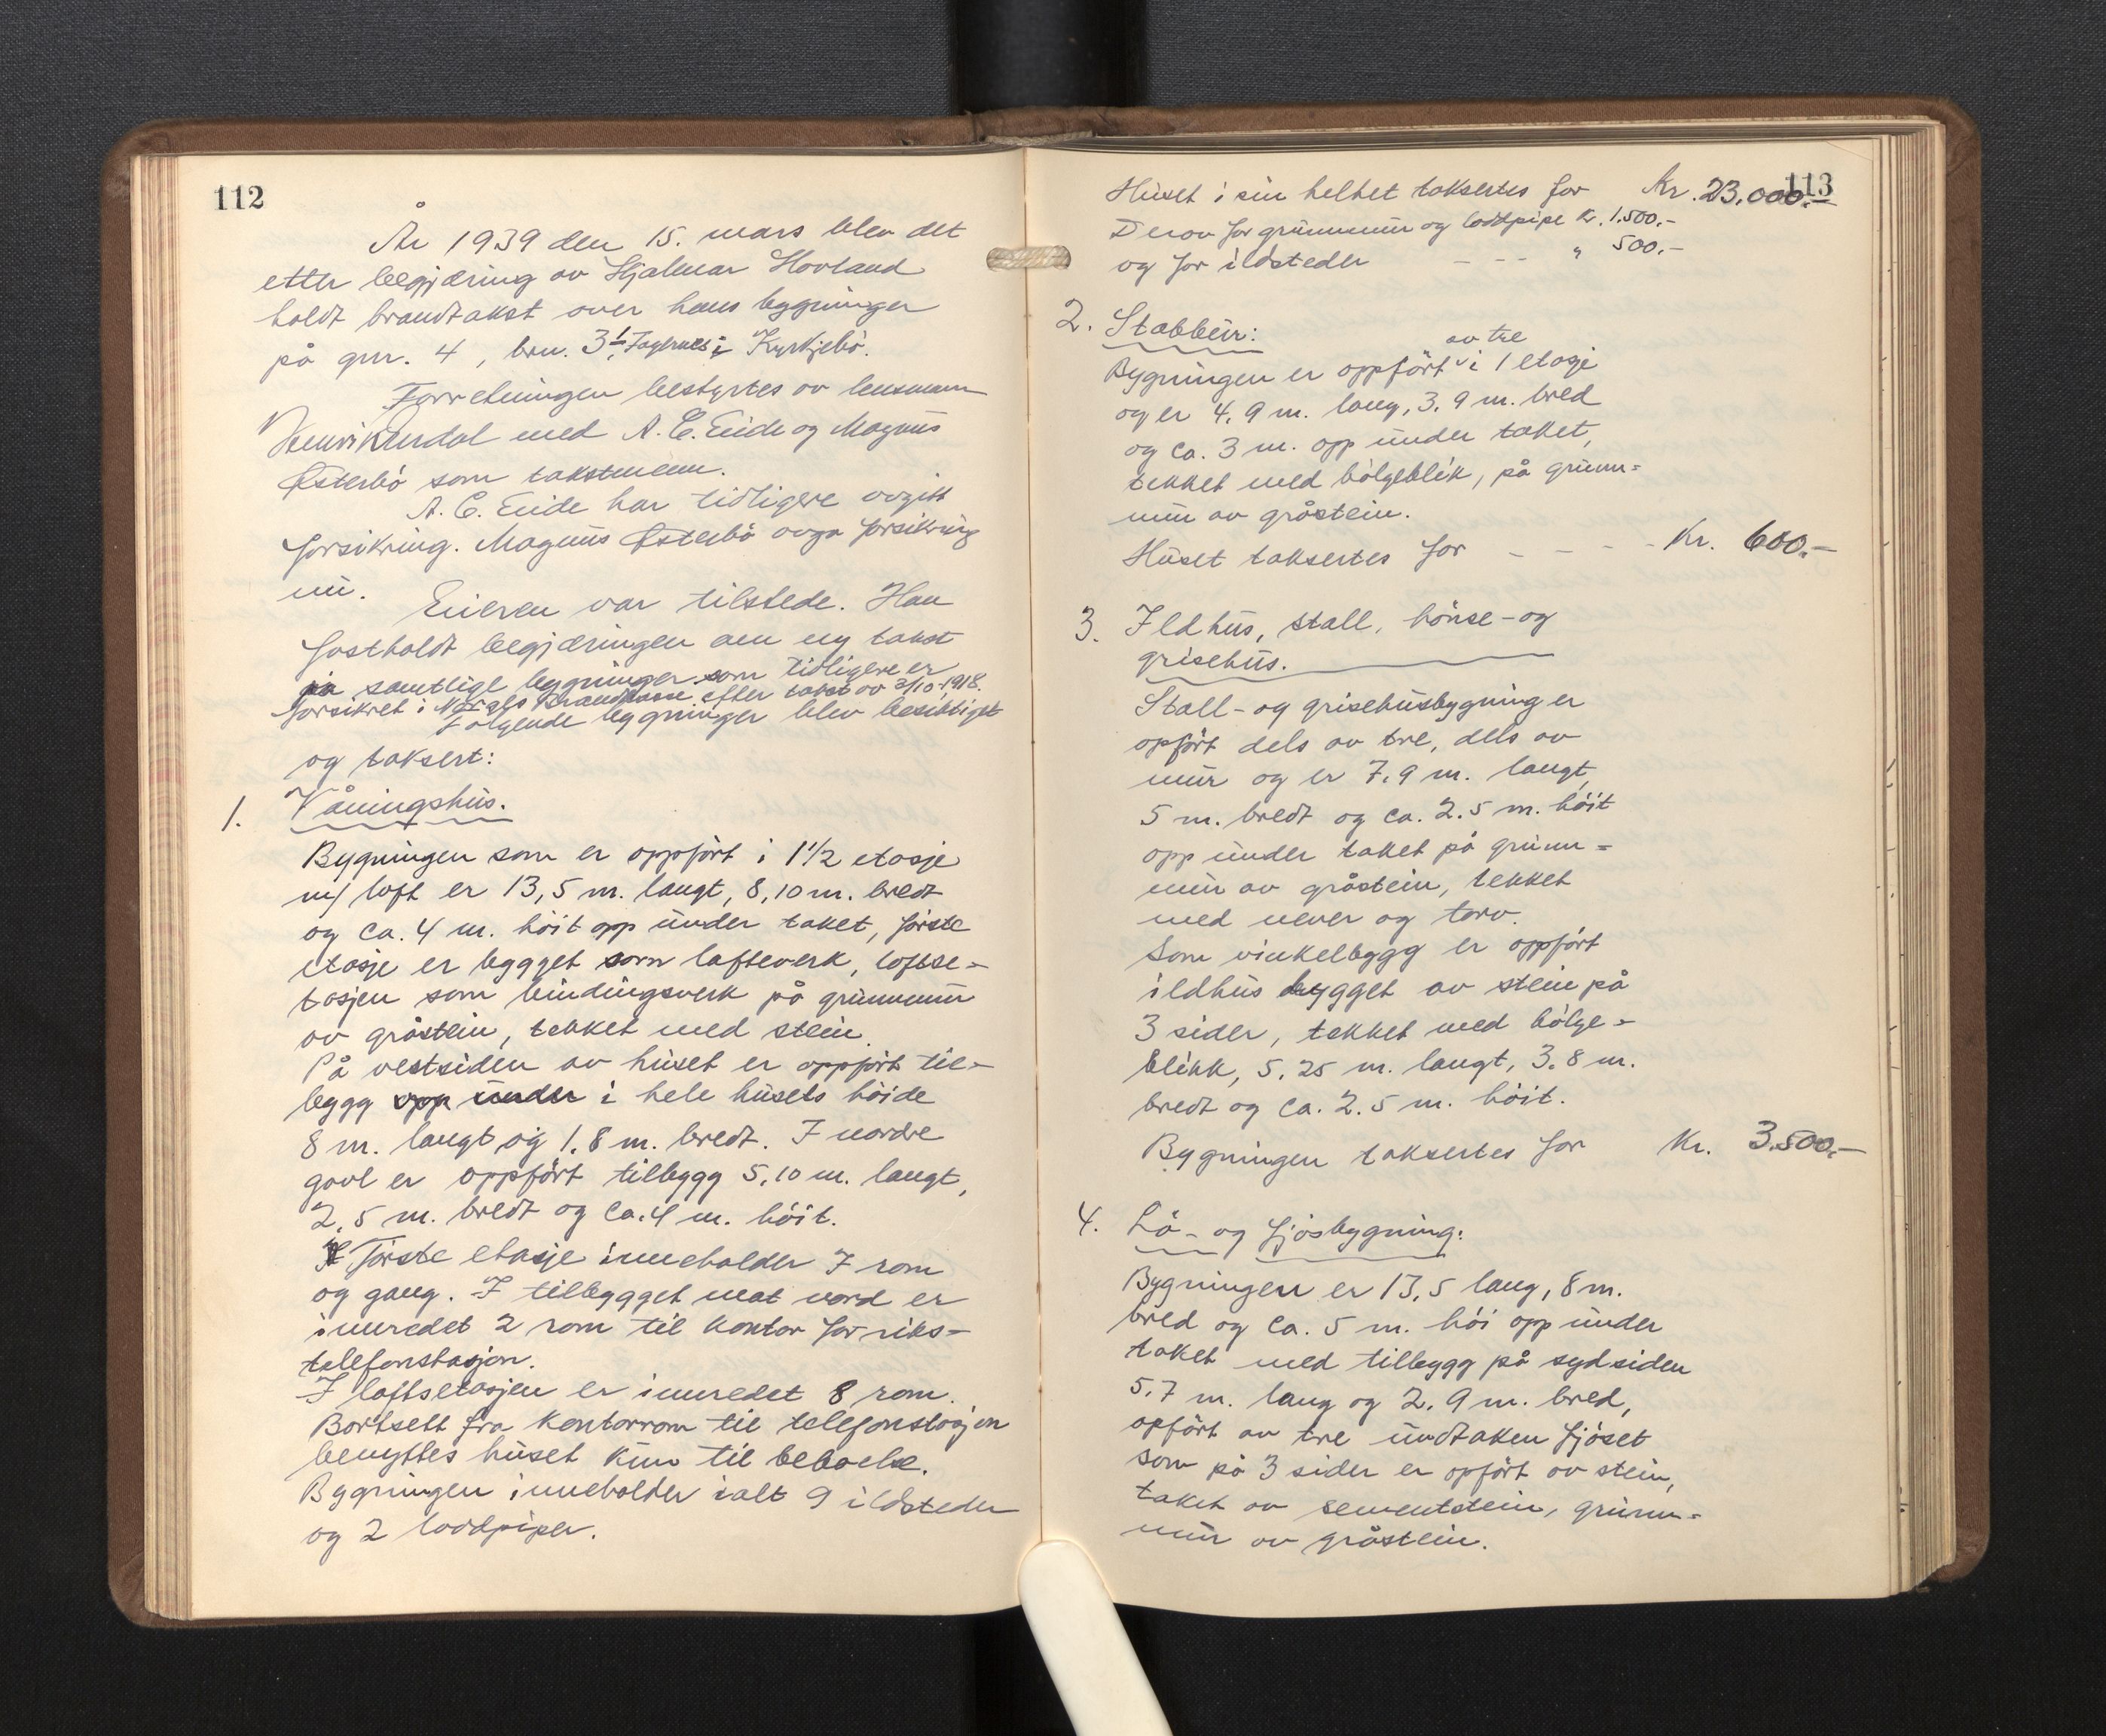 112
År 1939 den 15. mars blev det
etter begjæring av Hjalmar Hovland
holdt brandtakst over hans bygninger
på gnr. 4, brn. 31, Fagernes i Kyrkjebö.
Forretningen bestyrtes av lensmann
Henrik Årdal med A. E. Eide og Magnus
Østerbö som takstmenn.
A. E. Eide har tidligere avgitt
forsikring. Magnus Østerbö avga forsikring
nu.
Eieren var tilstede. Han
fastholdt begjæringen om ny takst
på samtlige bygninger som tidligere er
forsikret i Norges Brandkasse efter takst av 3/10-1918.
Følgende bygninger blev besiktiget
og taksert:
1. Våningshus.
Bygningen som er oppfört i 1 1/2 etasje
m/ loft er 13,5 m. langt, 8,10 m. bredt
og ca. 4 m. höit opp under taket, förste
etasje er bygget som lafteverk, loftse-
tasjen som bindingsverk på grunnmur
av gråstein, tekket med stein.
På vestsiden av huset er oppfört til-
bygg opp under i hele husets höide
8 m. langt og 1,8 m. bredt. I nordre
gavl er oppfört tilbygg 5,10 m. langt,
2,5 m. bredt og ca. 4 m. höit.
Förste etasje inneholder 7 rom
og gang. I tilbygget mot nord er
innredet 2 rom til kontor for riks-
telefonstasjon.
I loftsetasjen er innredet 8 rom.
Bortsett fra kontorrom til telefonstasjon
benyttes huset kun til beboelse.
Bygningen inneholder ialt 9 ildsteder
og 2 loddpiper.
113
Huset i sin helhet taksertes for Kr. 23.000.-
Derav for grunnmur og loddpipe Kr. 1.500.-
og for ildsteder - - - " 500.-
2. Stabbur:
av tre
Bygningen er oppfört i 1 etasje
og er 4,9 m. lang, 3,9 m. bred
og ca. 3 m. opp under taket,
tekket med bölgeblik, på grunn-
mur av gråstein.
Huset taksertes for - - - - Kr. 600.-
3. Ildhus, stall, hönse- og
grisehus.
Stall- og grisehusbygning er
opfört dels av tre, dels av
mur og er 7,9 m. langt,
5 m. bredt og ca. 2.5 m. höit
opp under taket på grunn-
mur av gråstein, tekket
med never og torv.
Som vinkelbygg er oppfört
ildhus bygget av stein på
3 sider, tekket med bölge-
blikk, 5,25 m. langt, 3.8 m.
bredt og ca. 2.5 m. höit.
Bygningen taksertes for Kr. 3.500.-
4. Lö- og fjösbygning:
Bygningen er 13,5 lang, 8 m.
bred og ca. 5 m. höi opp under
taket med tilbygg på sydsiden
5,7 m. lang og 2,9 m. bred,
opfört av tre undtaken fjöset
som på 3 sider er opfört av stein,
taket av sementstein, grunn-
mur av gråstein.